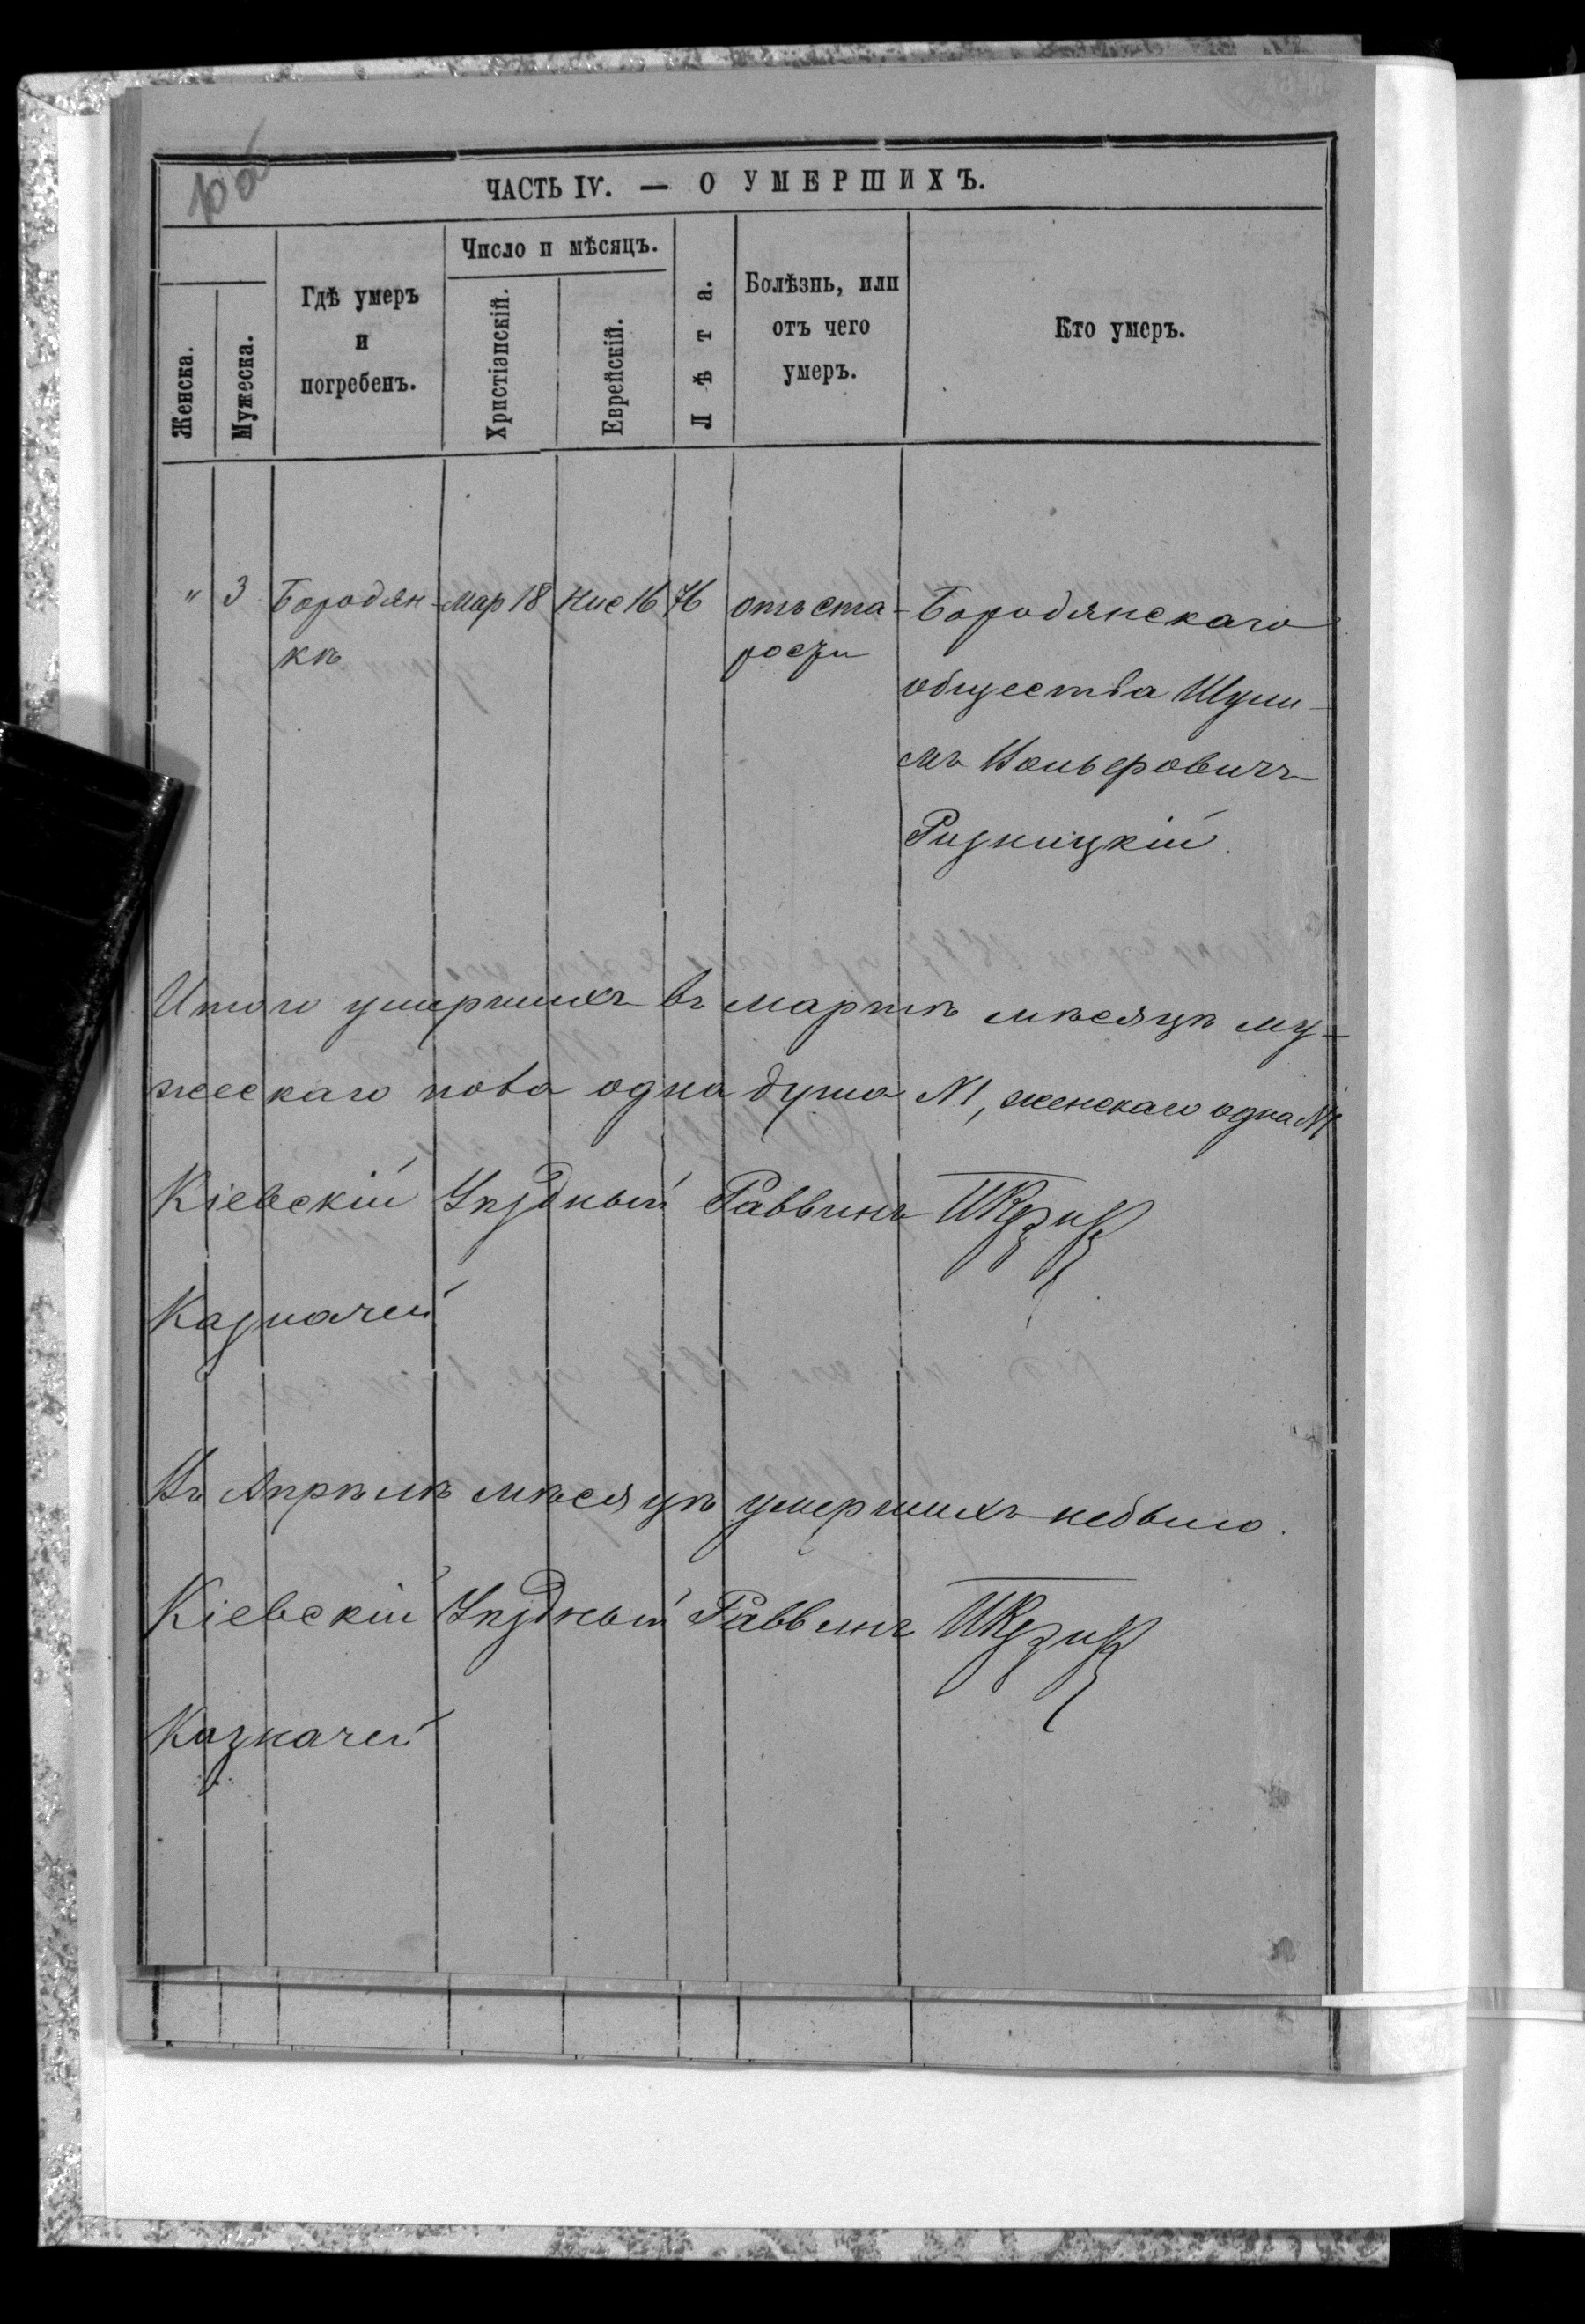 ЧАСТЬ IV. — О УМЕРШИХЪ.
Женска.
Мужеска.
Гдѣ умеръ
и
погребенъ.
Число и мѣсяцъ.
Христіанскій.
Еврейскій.
Лѣта.
Болѣзнь, или
отъ чего
умеръ.
Кто умеръ.
" 3 Бородян- Мар 18 Нис 16 76 отъ ста- Бородянскаго
кѣ рости общества Шули-
мъ Вольфовичъ
Ризницкій.
Итого умершихъ въ мартѣ мѣсяцѣ му-
жескаго пола одна душа №1, женскаго одна №1
Кіевскій Уѣздный Раввинъ
Казначей
Въ Апрѣлѣ мѣсяцѣ умершихъ небыло.
Кіевскій Уѣздный Раввинъ
Казначей